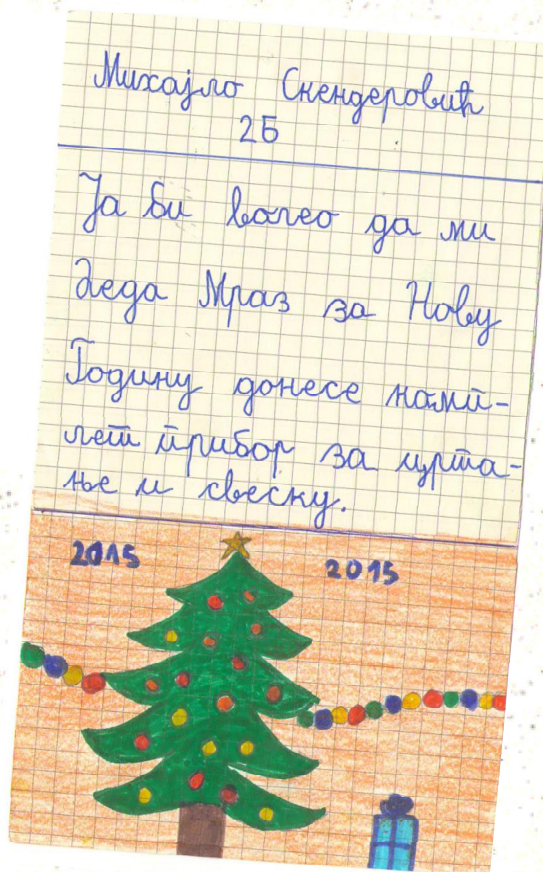 Михајло Скендеровић
2Б
Ја би волео да ми
Деда Мраз за Нову
Годину донесе комп-
лет прибор за црта-
ње и свеску.
2015 2015